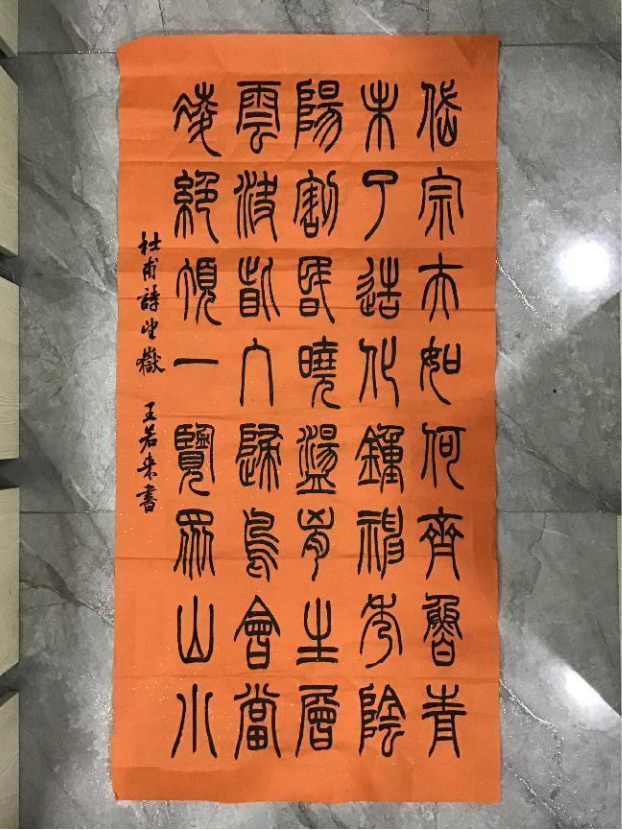 岱宗夫如何齊魯青
未了造化鐘神秀陰
陽割昏曉盪胸生層
雲決眥入歸鳥會當
凌絕頂一覽眾山小
杜甫詩望嶽 王若来書